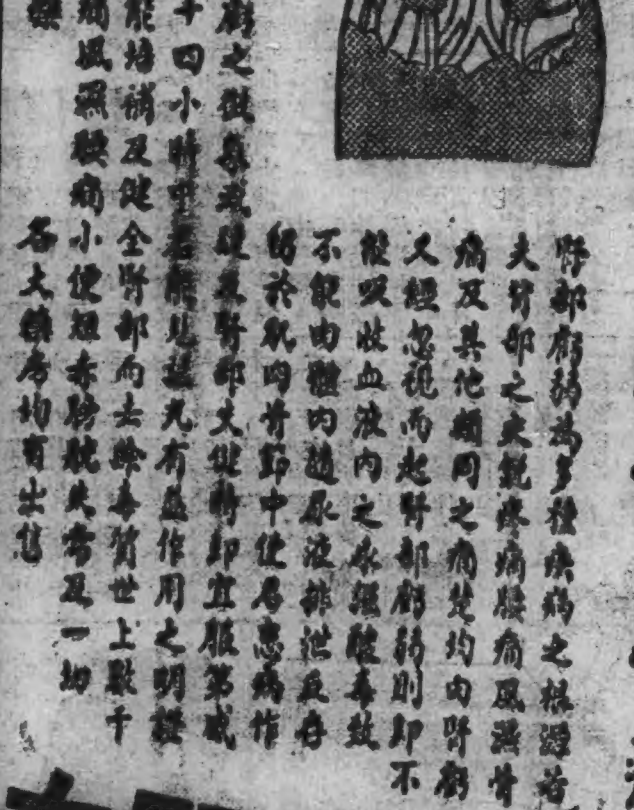 腎部虧弱為多種疾病之根源若
夫背部之尖銳疼痛腰痛風濕骨
痛及其他類同之痛楚均由腎虧
又經忽視而起腎部虧弱則即不
能吸收血液內之尿溫酸毒致
不能由體內隨尿液排泄反存
留於肌肉骨節中使各患病作
虧之徵象或腰及腎部欠健時即宜服第威
十四小時中若能見這丸有益作用之明證
能培補及健全腎部而去除毒質世上數千
痛風濕腰痛小便短赤膀胱失常及一切
各大藥房均有出售